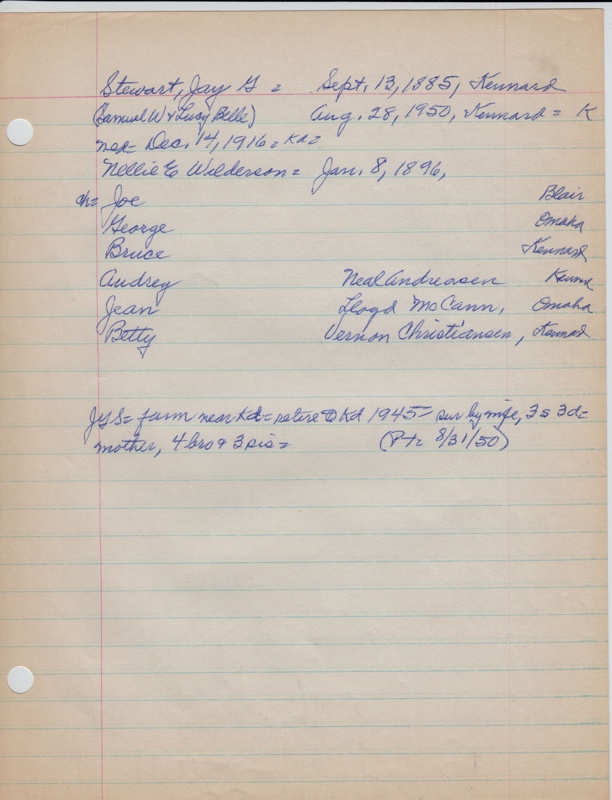 Stewart, Jay G = Sept. 13, 1885, Kennard
(Samuel W & Lucy Belle) Aug. 28, 1950, Kennard = K
med = Dec. 14, 1916 = Kd =
Nellie E Wilderson = Jan. 8, 1896,
ch = Joe Blair
George Omaha
Bruce Kennard
Audrey Neal Andreasen Kenna
Jean Lloyd McCann, Omaha
Betty Vernon Christiansen, Kennard
JGS = farm near Kd = retire to Kd 1945 - sur by wife, 3s 3d =
mother, 4 bro & 3 sis = (PT = 8/31/50)